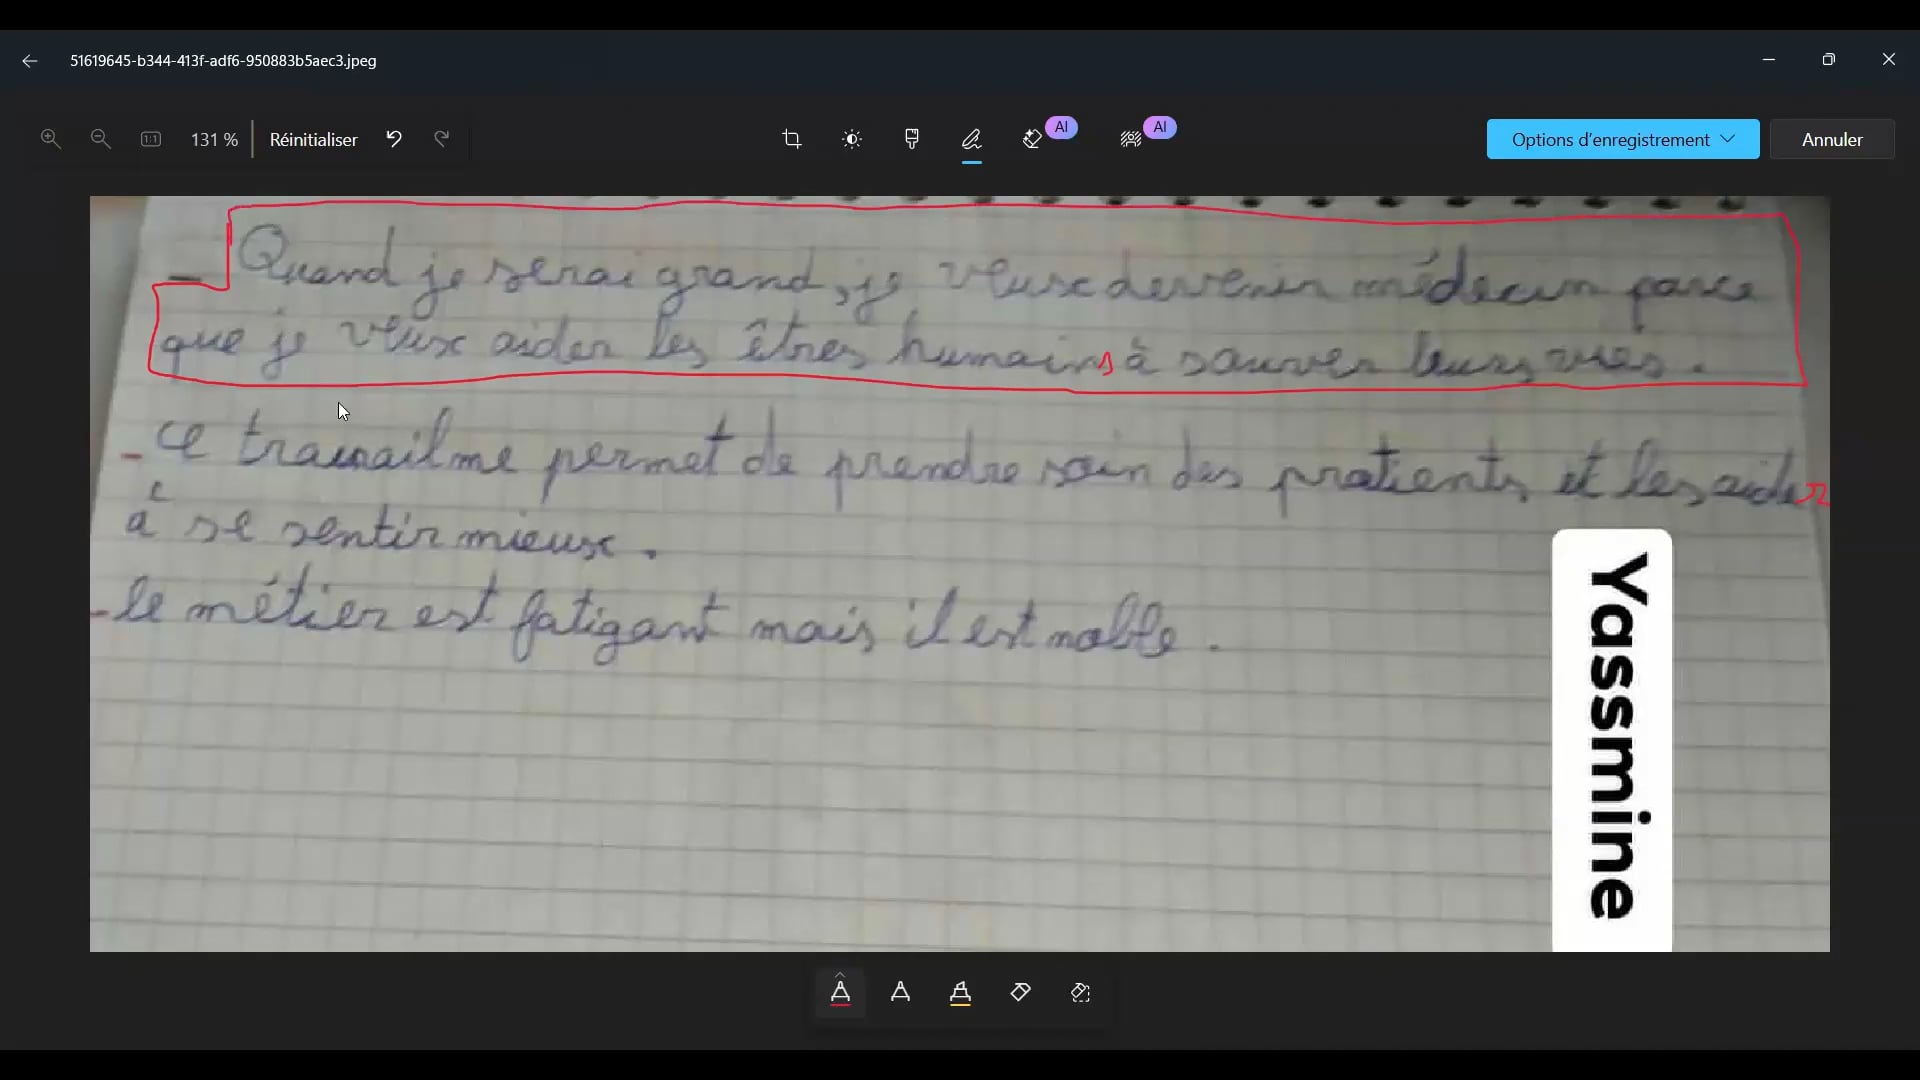 51619645-b344-413f-adf6-950883b5aec3.jpeg
131 %
Réinitialiser
AI
AI
Options d'enregistrement
Annuler
- Quand je serai grand, je veux devenir médecin parce
que je veux aider les êtres humains à sauver leurs vies.
- ce travail me permet de prendre soin des patients et les aider
à se sentir mieux.
- le métier est fatigant mais il est noble.
Yassmine